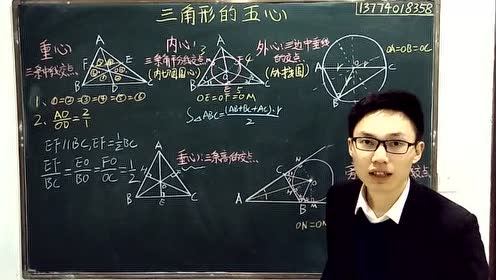 三角形的五心
13774018358
重心:
三条中线交点
A
F
E
B
D
C
1、①=②=③=④=⑤=⑥
2、AO/OD=2/1
EF∥BC,EF=1/2BC
EF/BC=EO/BO=FO/OC=1/2
内心:
三条角平分线交点
(内切圆圆心)
A
B
C
OE=OF=OM
S△ABC=(AB+BC+AC)·r/2
外心:三边中垂线
的交点
(外接圆)
A
C
B
OA=OB=OC
垂心:三条高的交点
A
B
E
C
A
C
B
N
O
M